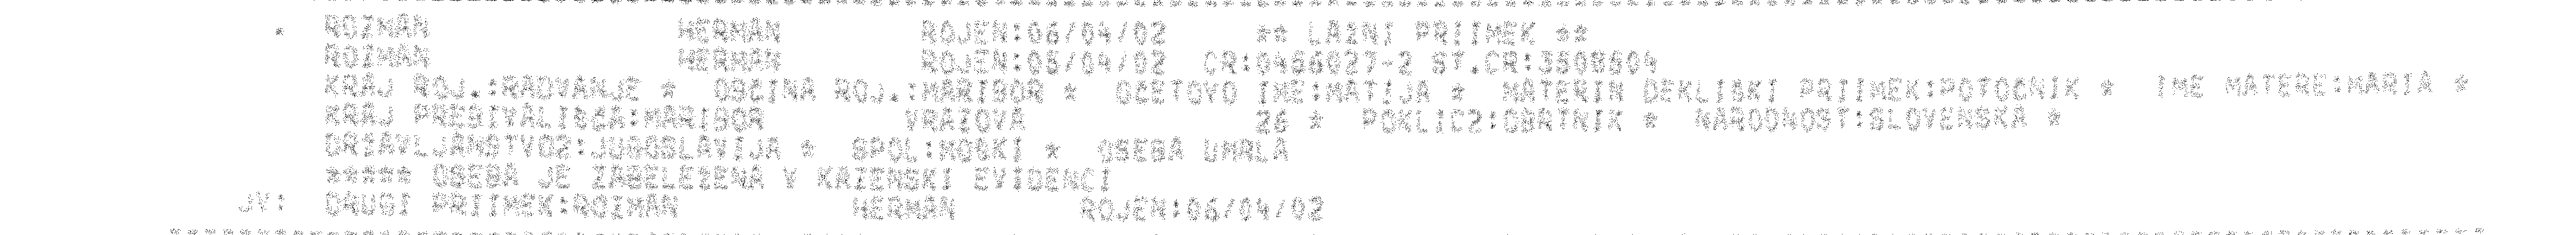 * ROZMAN HERMAN ROJEN:06/04/02 ** LAZNI PRIIMEK **
ROZMAN HERMAN ROJEN:06/04/02 CR:0486027-2 ST.CR:3508604
KRAJ ROJ.:RADVANJE * OBCINA ROJ.:MARIBOR * OCETOVO IME:MATIJA * MATERIN DEKLISKI PRIIMEK:POTOCNIK * IME MATERE:MARIA *
KRAJ PREBIVALISCA:MARIBOR VRAZOVA 26 * POKLIC2:OBRTNIK * NARODNOST:SLOVENSKA *
DRZAVLJANSTVO2:JUGOSLAVIJA * SPOL:MOSKI * OSEBA UMRLA
***** OSEBA JE ZABELEZENA V KAZENSKI EVIDENCI
JV: DRUGI PRIIMEK:ROZMAN HERMAN ROJEN:06/04/02